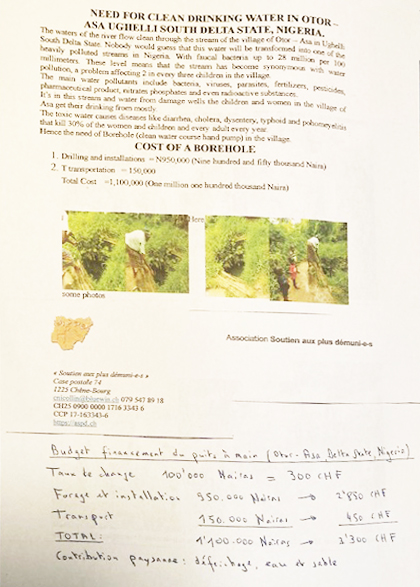 NEED FOR CLEAN DRINKING WATER IN OTOR –
ASA UGHELLI SOUTH DELTA STATE, NIGERIA.
The waters of the river flow clean through the stream of the village of Otor – Asa in Ughelli
South Delta State. Nobody would guess that this water will be transformed into one of the
heavily polluted streams in Nigeria. With faucal bacteria up to 28 million per 100
millimeters. These level means that the stream has become synonymous with water
pollution, a problem affecting 2 in every three children in the village.
The main water pollutants include bacteria, viruses, parasites, fertilizers, pesticides,
pharmaceutical product, nitrates phosphates and even radioactive substances.
It's in this stream and water from damage wells the children and women in the village of
Asa get their drinking from mostly.
The toxic water causes diseases like diarrhea, cholera, dysentery, typhoid and
that kill 30% of the women and children and every adult every year.
Hence the need of Borehole (clean water course hand pump) in the village.
COST OF A BOREHOLE
1. Drilling and installations = N950,000 (Nine hundred and fifty thousand Naira)
2. T transportation = 150,000
Total Cost =1,100,000 (One million one hundred thousand Naira)
some photos
Association Soutien aux plus démuni-e-s
« Soutien aux plus démuni-e-s »
Case postale 74
1225 Chêne-Bourg
079 547 89 18
CH25 0900 0000 1716 3343 6
CCP 17-163343-6
Budget financement du puits à main (Otor-Asa Delta State, Nigeria)
Taux de change 100'000 Nairas = 300 CHF
Forage et installation 950.000 Nairas → 2'850 CHF
Transport 150.000 Nairas → 450 CHF
TOTAL: 1'100.000 Nairas → 3'300 CHF
Contribution paysanne: défrichage, eau et sable